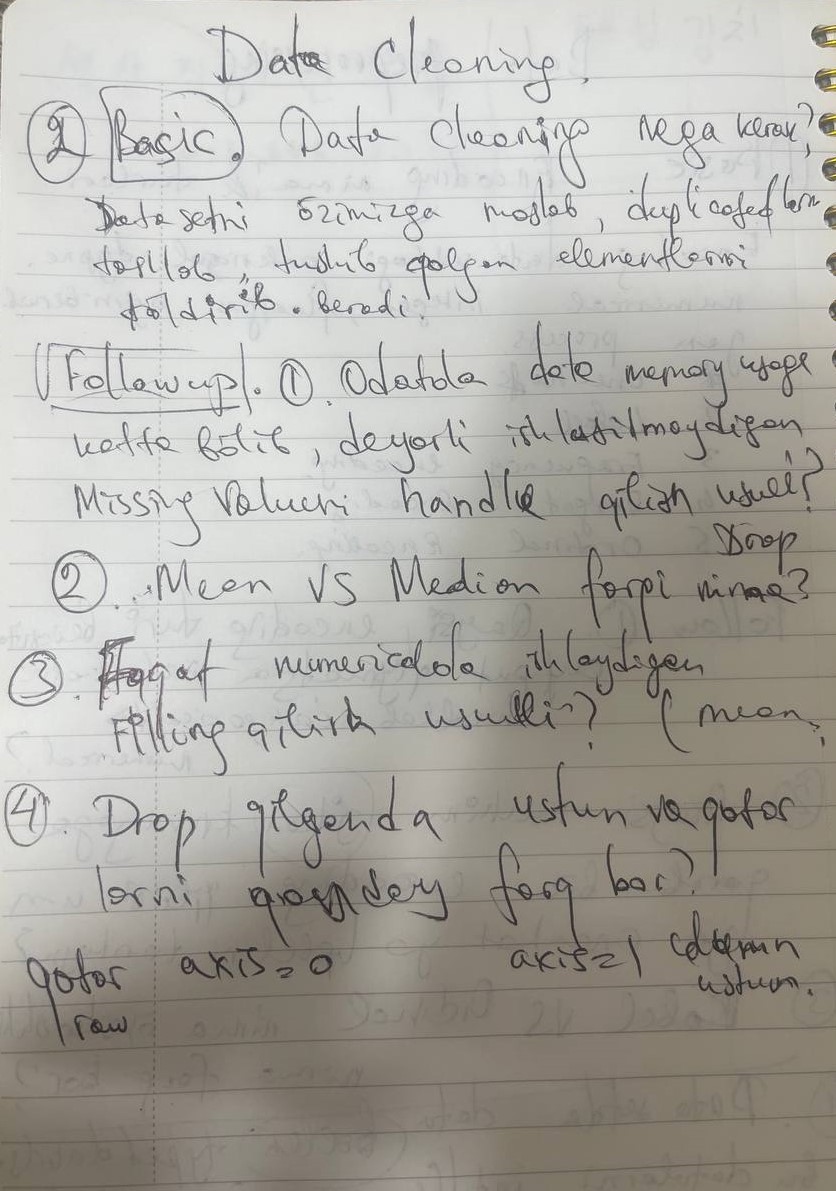 Data Cleaning.
② Basic. Data cleaning nega kerak?
Datasetni özimizga moslab, duplicatedlarni
tushib qolgan elementlarni
töldirib beradi.
Follow up. ①. Odatda data memory usage
katta bölib, deyarli ishlatilmaydigan
Missing Valueni handle qilish usuli?
Drop
②. Mean VS Median farqi nima?
③. Faqat numericalda ishlaydigan
Filling qilish usulli? (mean,
④. Drop qilganda ustun va qator
larni qanday farq bor?
qator axis=0 axis=1 column
raw ustun.